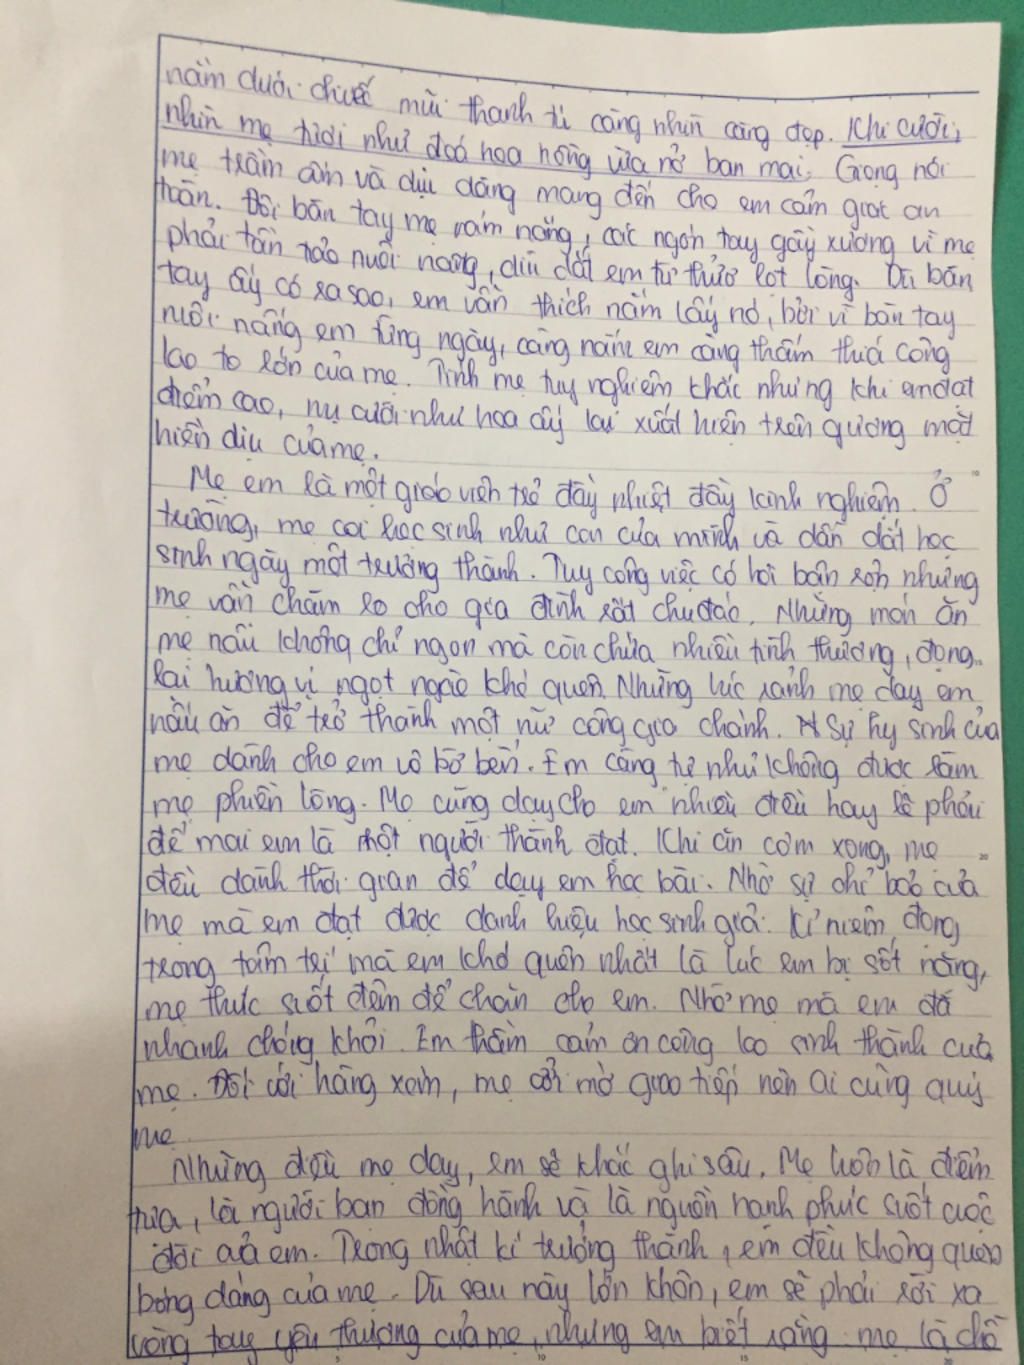 nằm dưới chiếc mũi thanh tú càng nhìn càng đẹp. Khi cười,
nhìn mẹ tươi như đoá hoa hồng vừa nở ban mai. Giọng nói
mẹ trầm ấm và dịu dàng mang đến cho em cảm giác an
toàn. Đôi bàn tay mẹ rám nắng, các ngón tay gầy xương vì mẹ
phải tần tảo nuôi nấng, dìu dắt em từ thưở lọt lòng. Dù bàn
tay ấy có ra sao, em vẫn thích nắm lấy nó, bởi vì bàn tay
nuôi nấng em từng ngày, càng nắm em càng thấm thía công
lao to lớn của mẹ. Tính mẹ tuy nghiêm khắc nhưng khi em đạt
điểm cao, nụ cười như hoa ấy lại xuất hiện trên gương mặt
hiền dịu của mẹ.
Mẹ em là một giáo viên trẻ đầy nhiệt đầy kinh nghiệm. Ở
trường, mẹ coi học sinh như con của mình và dẫn dắt học
sinh ngày một trưởng thành. Tuy công việc có hơi bận rộn nhưng
mẹ vẫn chăm lo cho gia đình rất chu đáo. Những món ăn
mẹ nấu không chỉ ngon mà còn chứa nhiều tình thương, đọng
lại hương vị ngọt ngào khó quên. Những lúc rảnh mẹ dạy em
nấu ăn để trở thành một nữ công gia chánh. Sự hy sinh của
mẹ dành cho em vô bờ bến. Em càng tự nhủ không được làm
mẹ phiền lòng. Mẹ cũng dạy cho em nhiều điều hay lẽ phải
để mai em là một người thành đạt. Khi ăn cơm xong, mẹ
đều dành thời gian để dạy em học bài. Nhờ sự chỉ bảo của
mẹ mà em đạt được danh hiệu học sinh giỏi. Kỉ niệm đọng
trong tâm trí mà em khó quên nhất là lúc em bị sốt nặng,
mẹ thức suốt đêm để chăm cho em. Nhờ mẹ mà em đã
nhanh chóng khỏi. Em thầm cảm ơn công lao sinh thành của
mẹ. Đối với hàng xóm, mẹ cởi mở giao tiếp nên ai cũng quý
mẹ.
Những điều mẹ dạy, em sẽ khắc ghi sâu. Mẹ luôn là điểm
tựa, là người bạn đồng hành và là nguồn hạnh phúc suốt cuộc
đời của em. Trong nhật kí trưởng thành, em đều không quên
bóng dáng của mẹ. Dù sau này lớn khôn, em sẽ phải rời xa
vòng tay yêu thương của mẹ, nhưng em biết rằng mẹ là chỗ